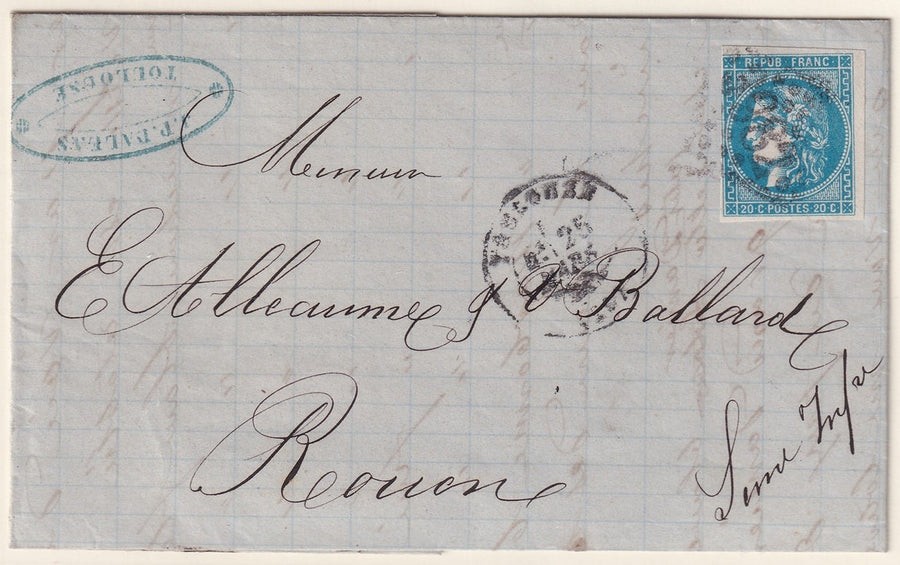 J.P. PALEAS
TOULOUSE
REPUB. FRANC.
20·C·POSTES 20·C
Messieurs
TOULOUSE
25
MARS
E Alleaume & V Ballard
Rouen
Seine Infre